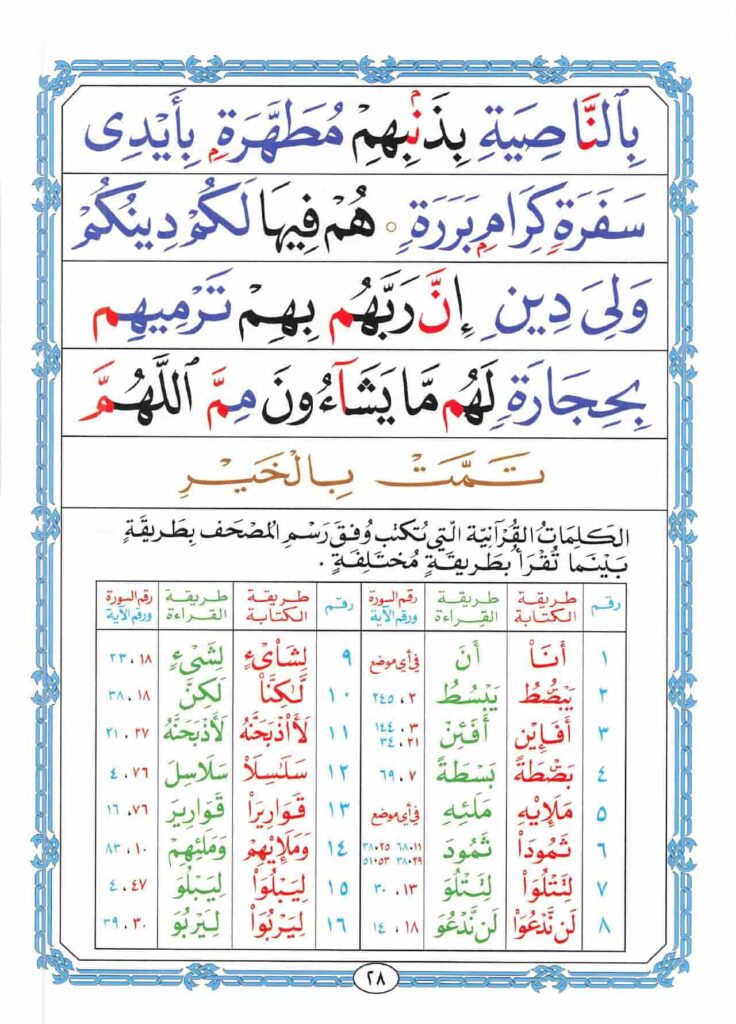 بِٱلنَّاصِيَةِ بِذَنۢبِهِمْ مُطَهَّرَةٍۭ بِأَيْدِى
سَفَرَةٍ كِرَامٍۭ بَرَرَةٍ ○ هُمْ فِيهَا لَكُمْ دِينُكُمْ
وَلِىَ دِينِ إِنَّ رَبَّهُم بِهِمْ تَرْمِيهِم
بِحِجَارَةٍ لَهُم مَّا يَشَآءُونَ مِمَّ ٱللَّهُمَّ
تَمَّتْ بِالْخَيْرِ
الكَلِمَاتُ القُرْآنِيَّة الَّتِي تُكتَب وُفقَ رَسْمِ المُصْحَف بِطَرِيقَةٍ
بَيْنَمَا تُقْرَأُ بِطَرِيقَةٍ مُخْتَلِفَةٍ .
رقم طريقة الكتابة طريقة القراءة رقم السورة ورقم الآية رقم طريقة الكتابة طريقة القراءة رقم السورة ورقم الآية
١ أَنَا۠ أَنَ في أي موضع ٩ لِشَا۟ىْءٍ لِشَىْءٍ ١٨ ، ٢٣
٢ يَبْصُّطُ يَبْسُطُ ٢ ، ٢٤٥ ١٠ لَّٰكِنَّا۠ لَكِنَّ ١٨ ، ٣٨
٣ أَفَإِي۟ن أَفَئِنْ ٣ ، ١٤٤ ٢١ ، ٣٤ ١١ لَأَا۟ذْبَحَنَّهُ لَأَذْبَحَنَّهُ ٢٧ ، ٢١
٤ بَصْۜطَةً بَسْطَةً ٧ ، ٦٩ ١٢ سَلَٰسِلَا۟ سَلَاسِلَ ٧٦ ، ٤
٥ مَلَإِي۟هِ مَلَئِهِ في أي موضع ١٣ قَوَارِيرَا۟ قَوَارِيرَ ٧٦ ، ١٦
٦ ثَمُودَا۟ ثَمُودَ ١١،٦٨ ٢٥،٣٨ ٢٩،٣٨ ٥٣،٥١ ١٤ وَمَلَإِي۟هِمْ وَمَلَئِهِمْ ١٠ ، ٨٣
٧ لِتَتْلُوَا۟ لِتَتْلُوَ ١٣ ، ٣٠ ١٥ لِيَبْلُوَا۟ لِيَبْلُوَ ٤٧ ، ٤
٨ لَن نَّدْعُوَا۟ لَن نَّدْعُوَ ١٨ ، ١٤ ١٦ لِيَرْبُوَا۟ لِيَرْبُوَ ٣٠ ، ٣٩
٢٨